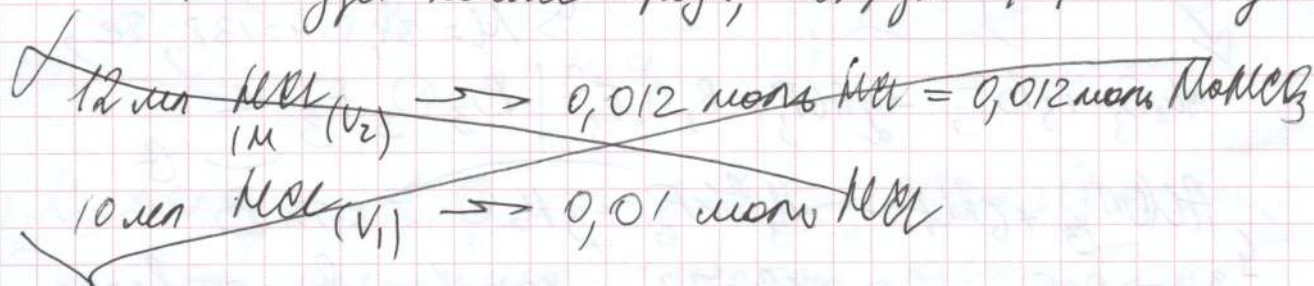 после
12 мл HCl (V₂) → 0,012 моль HCl = 0,012 моль NaHCO₃
1М
10 мл HCl (V₁) → 0,01 моль HCl